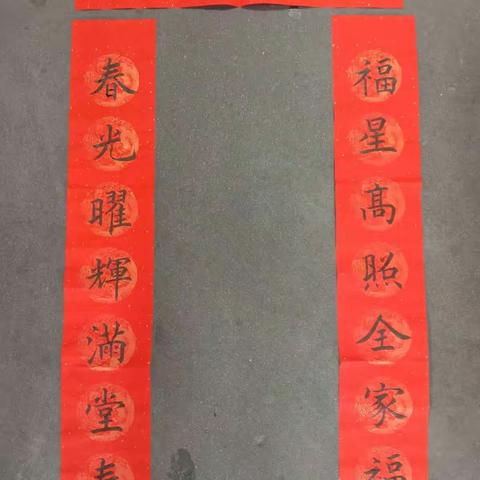 福星高照全家福
春光曜輝滿堂春